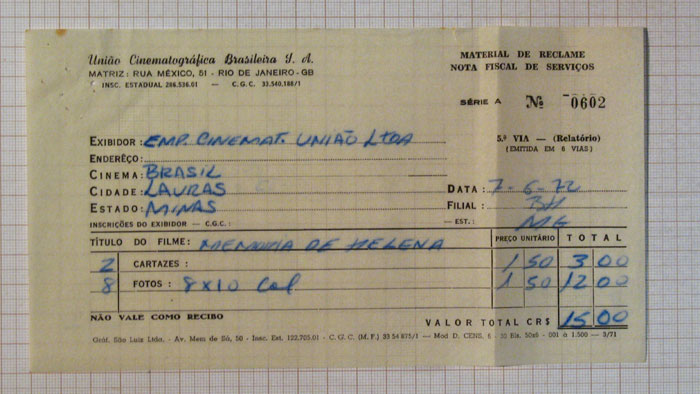 União Cinematográfica Brasileira S. A.
MATRIZ: RUA MÉXICO, 51 - RIO DE JANEIRO-GB
INSC. ESTADUAL 286.536.01 — C.G.C. 33.540.188/1
MATERIAL DE RECLAME
NOTA FISCAL DE SERVIÇOS
SÉRIE A Nº 0602
5.ª VIA — (Relatório)
(EMITIDA EM 6 VIAS)
EXIBIDOR: EMP. CINEMAT. UNIÃO LTDA
ENDERÊÇO:
CINEMA: BRASIL
CIDADE: LAVRAS
ESTADO: MINAS
INSCRIÇÕES DO EXIBIDOR — C.G.C.:
DATA: 7-6-72
FILIAL: BH
— EST.: MG
TÍTULO DO FILME: MEMORIA DE HELENA PREÇO UNITÁRIO TOTAL
2 CARTAZES: 1 50 3 00
8 FOTOS: 8X10 Col 1 50 12 00
NÃO VALE COMO RECIBO VALOR TOTAL CR$ 15 00
Gráf. São Luiz Ltda. - Av. Mem de Sá, 50 - Insc. Est. 122.705.01 - C. G. C. (M. F.) 33 54 875/1 — Mod D. CENS, 6 - 30 Bls. 50x6 - 001 à 1.500 — 3/71